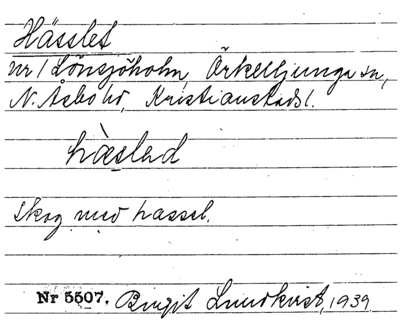 Hässlet
nr 1 Lönsjöholm, Örkelljunga sn,
N. Åsbo hd, Kristianstads l.
hæslad
Skog med hassel.
Nr 5507. Birgit Lundkvist, 1939